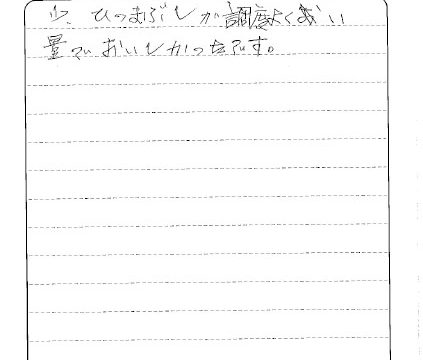 少、ひつまぶしが調度よくあい
量でおいしかったです。